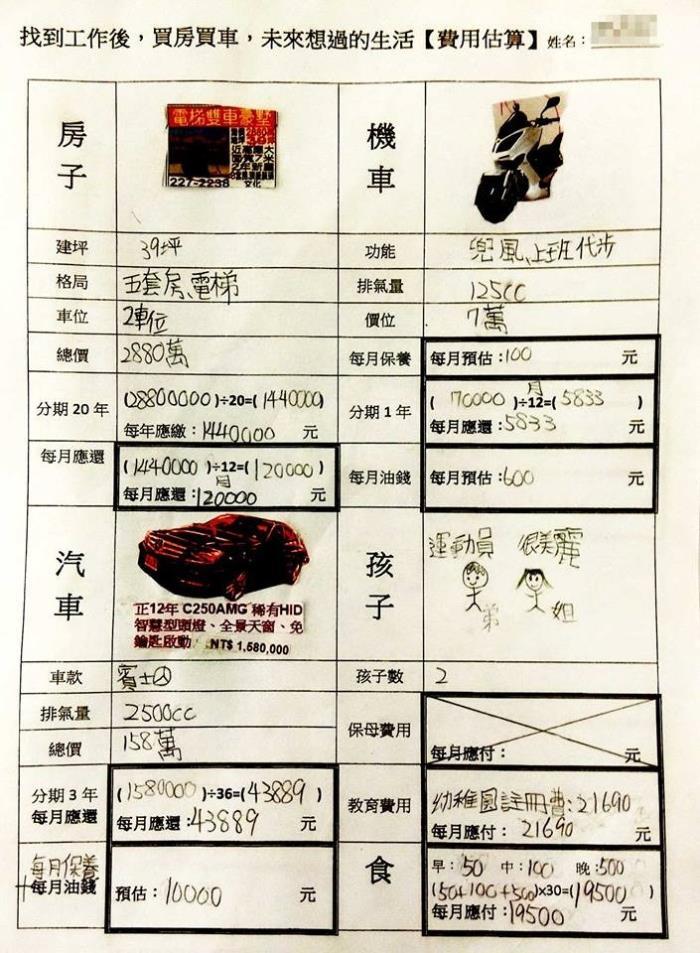 找到工作後，買房買車，未來想過的生活【費用估算】姓名：
房子
電梯雙車豪墅
2年新農
227-2238 文化
機車
建坪 39坪
功能 兜風、上班代步
格局 五套房、電梯
排氣量 125cc
車位 2車位
價位 7萬
總價 2880萬
每月保養 每月預估：100 元
分期 20 年 (28800000)÷20=(1440000)
每年應繳：1440000 元
分期 1 年 (70000)÷12=(5833)
月
每月應還：5833 元
每月應還 (1440000)÷12=(120000)
月
每月應還：120000 元
每月油錢 每月預估：600 元
汽車
正12年 C250AMG 稀有HID
智慧型頭燈、全景天窗、免
鑰匙啟動 NT$ 1,580,000
孩子
運動員 很美麗
弟 姐
車款 賓士
孩子數 2
排氣量 2500cc
總價 158萬
保母費用 每月應付： 元
分期 3 年
每月應還 (1580000)÷36=(43889)
每月應還：43889 元
教育費用 幼稚園註冊費：21690
每月應付：21690 元
每月保養
+每月油錢 預估：10000 元
食
早：50 中：100 晚：500
(50+100+500)×30=(19500)
每月應付：19500 元